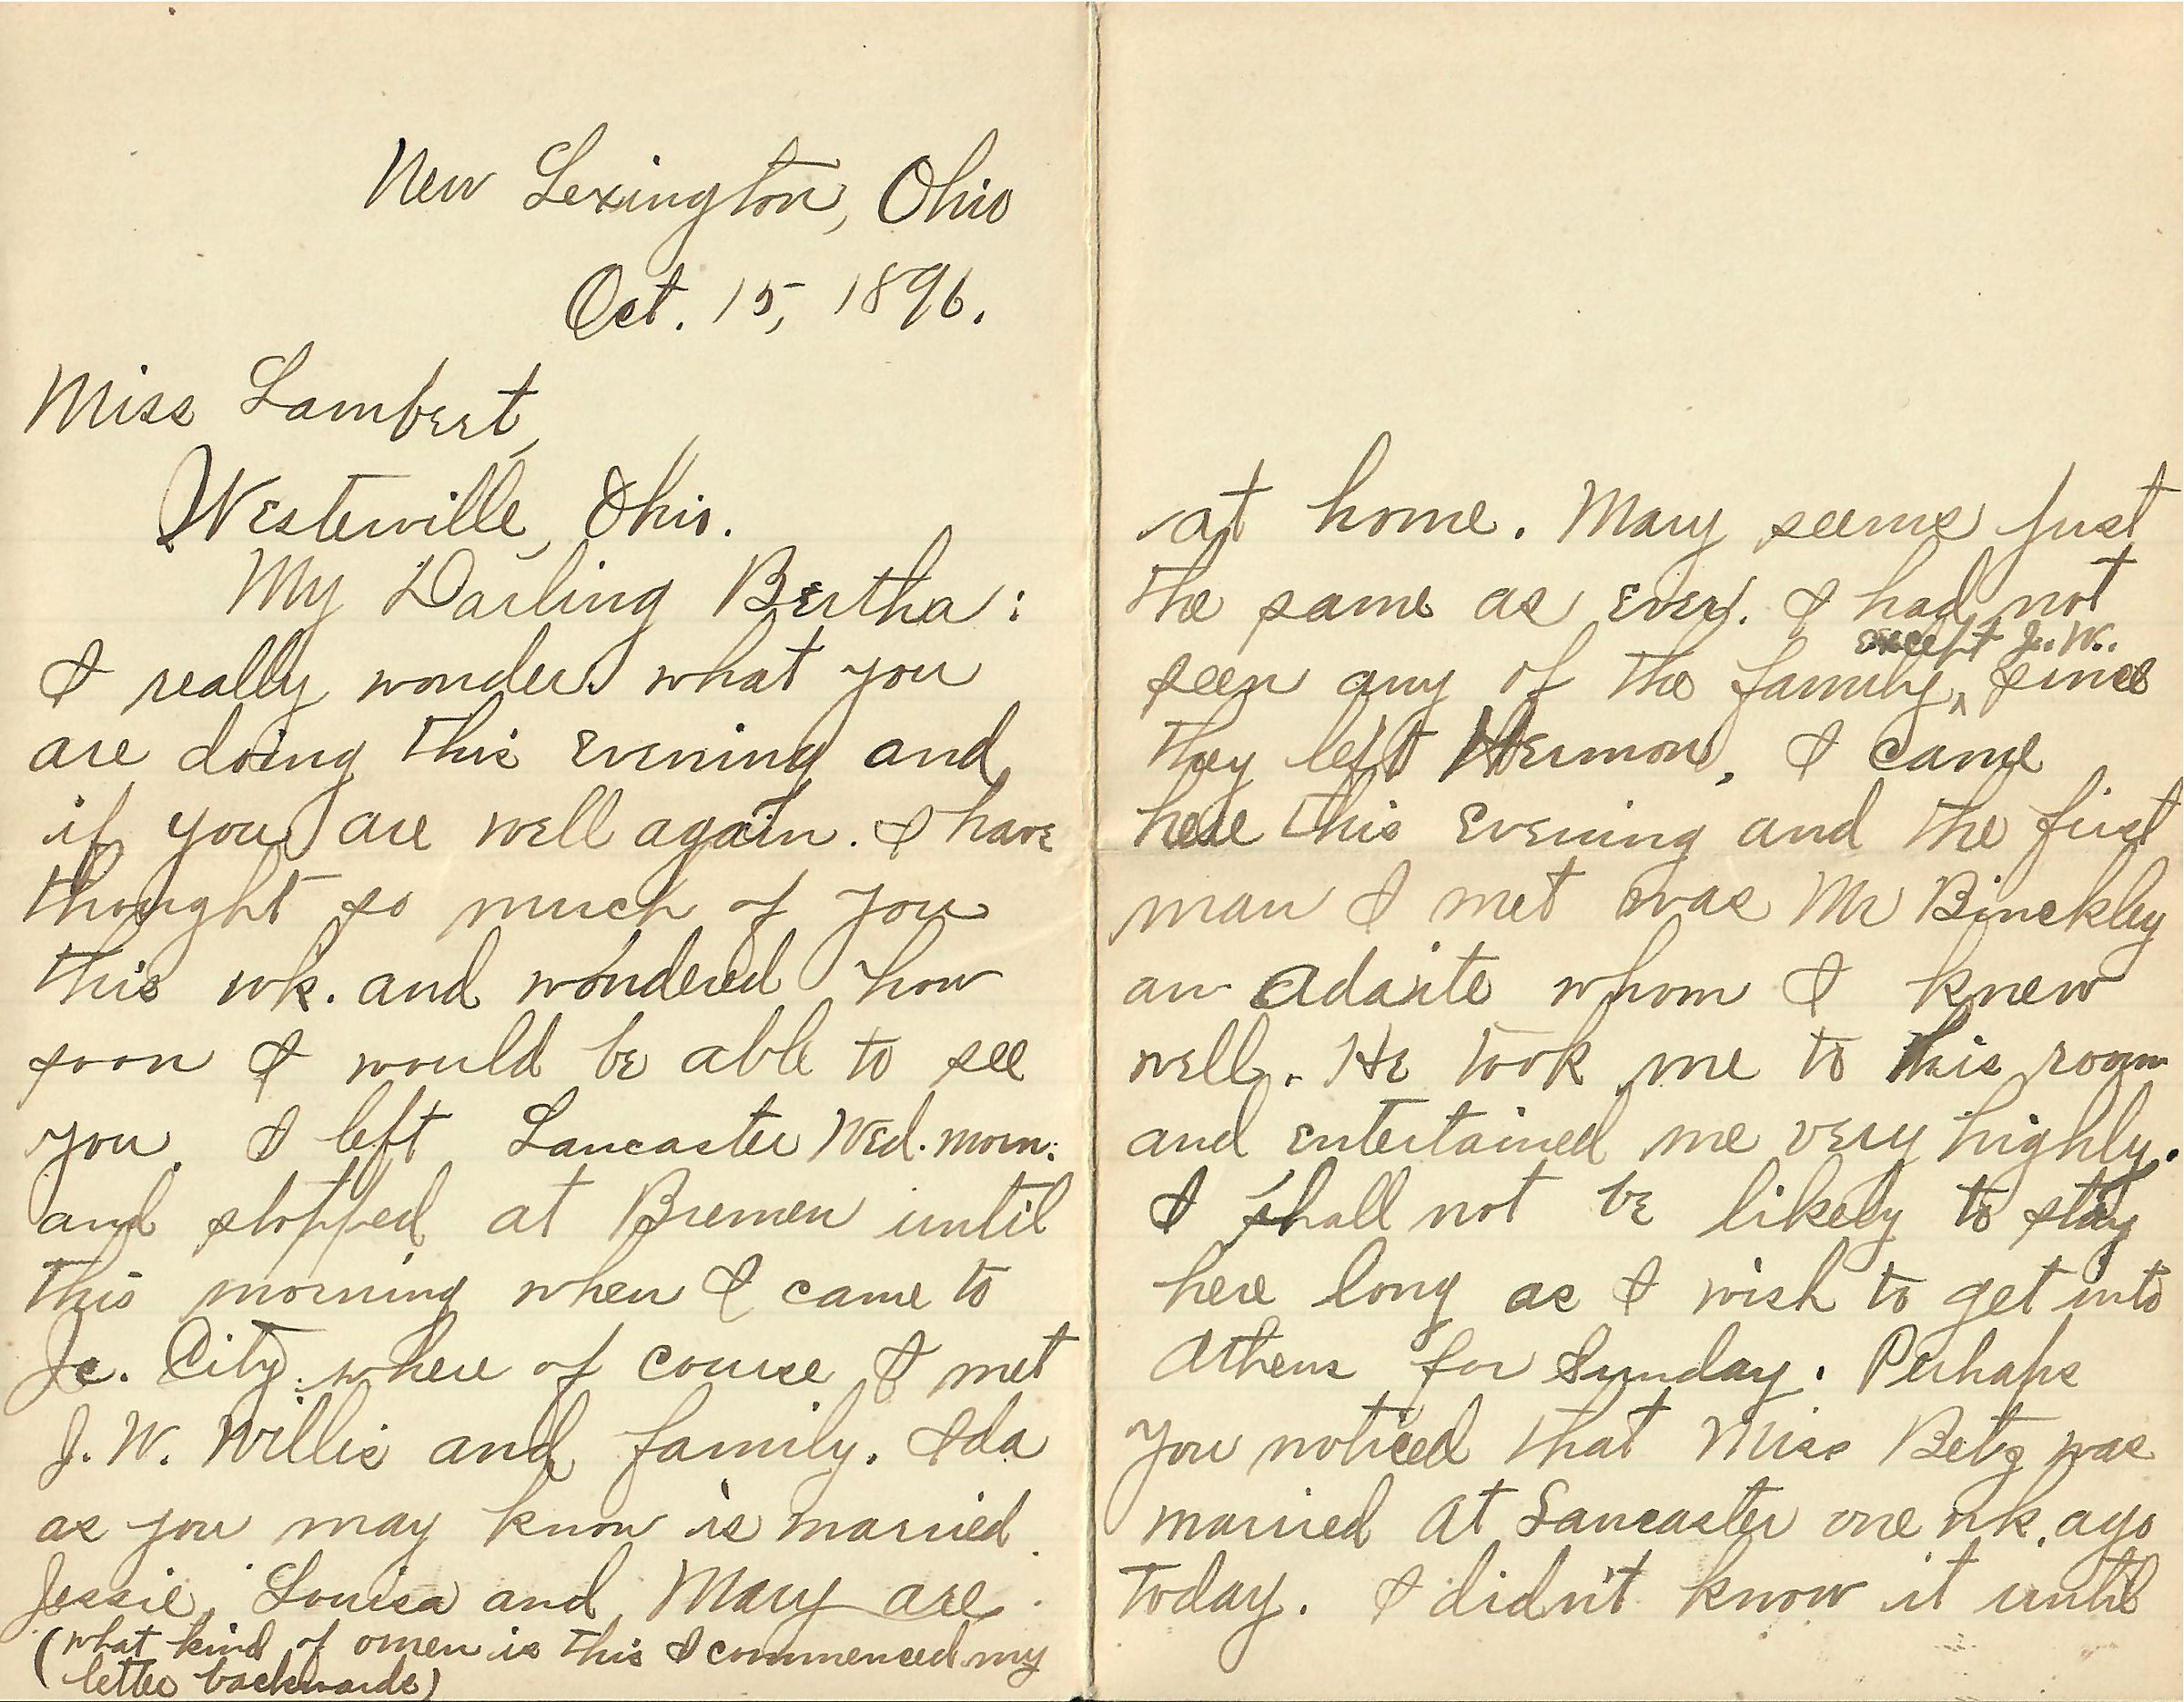 New Lexington, Ohio
Oct. 15, 1896.
Miss Lambert,
Westerville, Ohio.
My Darling Bertha:
I really wonder what you
are doing this evening and
if you are well again. I have
thought so much of you
this wk. and wondered how
soon I would be able to see
you. I left Lancaster Wed. morn.
and stopped at Bremen until
this morning when I came to
Jc. City where of course I met
J. W. Willis and family. Ida
as you may know is married.
Jessie, Louisa and Mary are
(what kind of omen is this I commenced my
letter backwards)
at home. Mary seems just
the same as ever. I had not
except J. W.
seen any of the family, since
they left Hermon. I came
here this evening and the first
man I met was Mr Binckley
an Adaite whom I knew
well. He took me to his room
and entertained me very highly.
I shall not be likely to stay
here long as I wish to get into
Athens for Sunday. Perhaps
you noticed that Miss Betz was
married at Lancaster one wk. ago
today. I didn't know it until